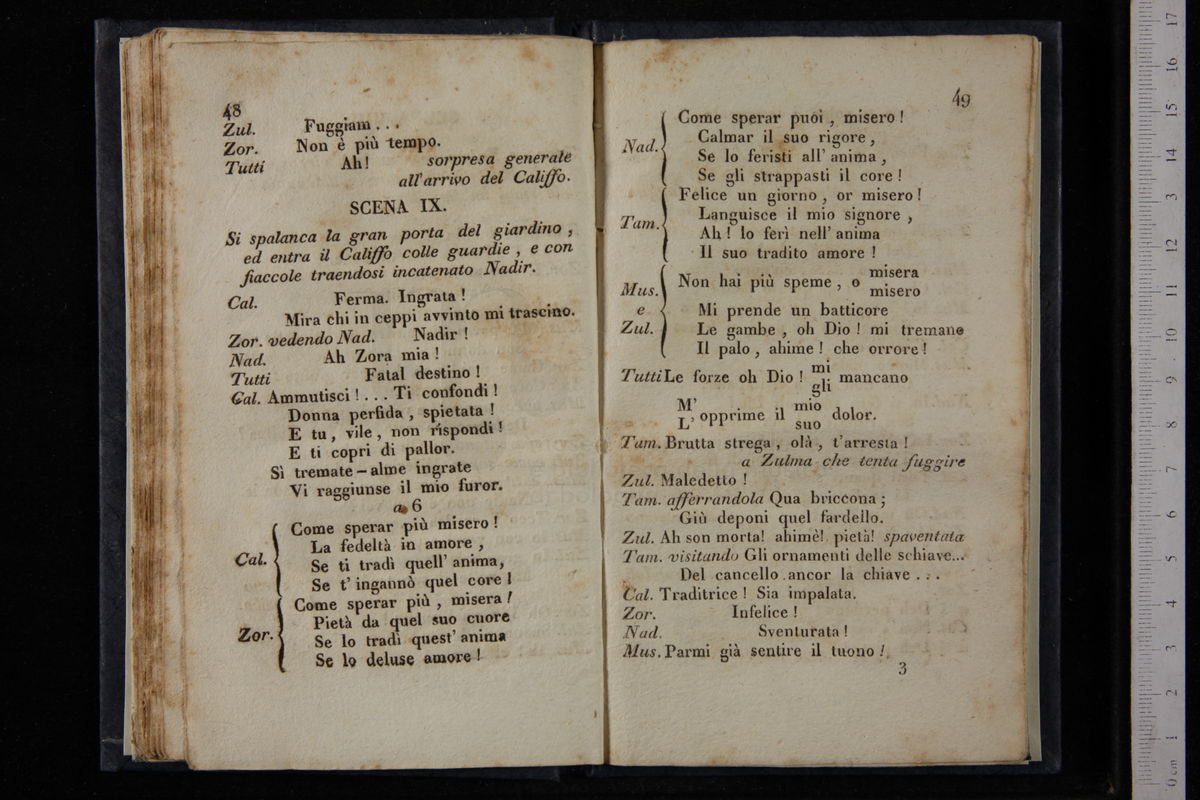 48
Zul. Fuggiam...
Zor. Non è più tempo.
Tutti Ah! sorpresa generale
all'arrivo del Califfo.
SCENA IX.
Si spalanca la gran porta del giardino,
ed entra il Califfo colle guardie, e con
fiaccole traendosi incatenato Nadir.
Cal. Ferma. Ingrata!
Mira chi in ceppi avvinto mi trascino.
Zor. vedendo Nad. Nadir!
Nad. Ah Zora mia!
Tutti Fatal destino!
Cal. Ammutisci!... Ti confondi!
Donna perfida, spietata!
E tu, vile, non rispondi!
E ti copri di pallor.
Sì tremate – alme ingrate
Vi raggiunse il mio furor.
a 6
Come sperar più misero!
La fedeltà in amore,
Cal. Se ti tradì quell' anima,
Se t' ingannò quel core!
Come sperar più, misera!
Pietà da quel suo cuore
Zor. Se lo tradì quest' anima
Se lo deluse amore!
49
Come sperar puoi, misero!
Calmar il suo rigore,
Nad. Se lo feristi all' anima,
Se gli strappasti il core!
Felice un giorno, or misero!
Languisce il mio signore,
Tam. Ah! lo ferì nell' anima
Il suo tradito amore!
Mus. Non hai più speme, o misera
misero
e Mi prende un batticore
Zul. Le gambe, oh Dio! mi tremano
Il palo, ahime! che orrore!
Tutti Le forze oh Dio! mi mancano
gli
M' opprime il mio dolor.
L' suo
Tam. Brutta strega, olà, t'arresta!
a Zulma che tenta fuggire
Zul. Maledetto!
Tam. afferrandola Qua briccona;
Giù deponi quel fardello.
Zul. Ah son morta! ahimè! pietà! spaventata
Tam. visitando Gli ornamenti delle schiave...
Del cancello ancor la chiave...
Cal. Traditrice! Sia impalata.
Zor. Infelice!
Nad. Sventurata!
Mus. Parmi già sentire il tuono!
3
0 cm 1 2 3 4 5 6 7 8 9 10 11 12 13 14 15 16 17